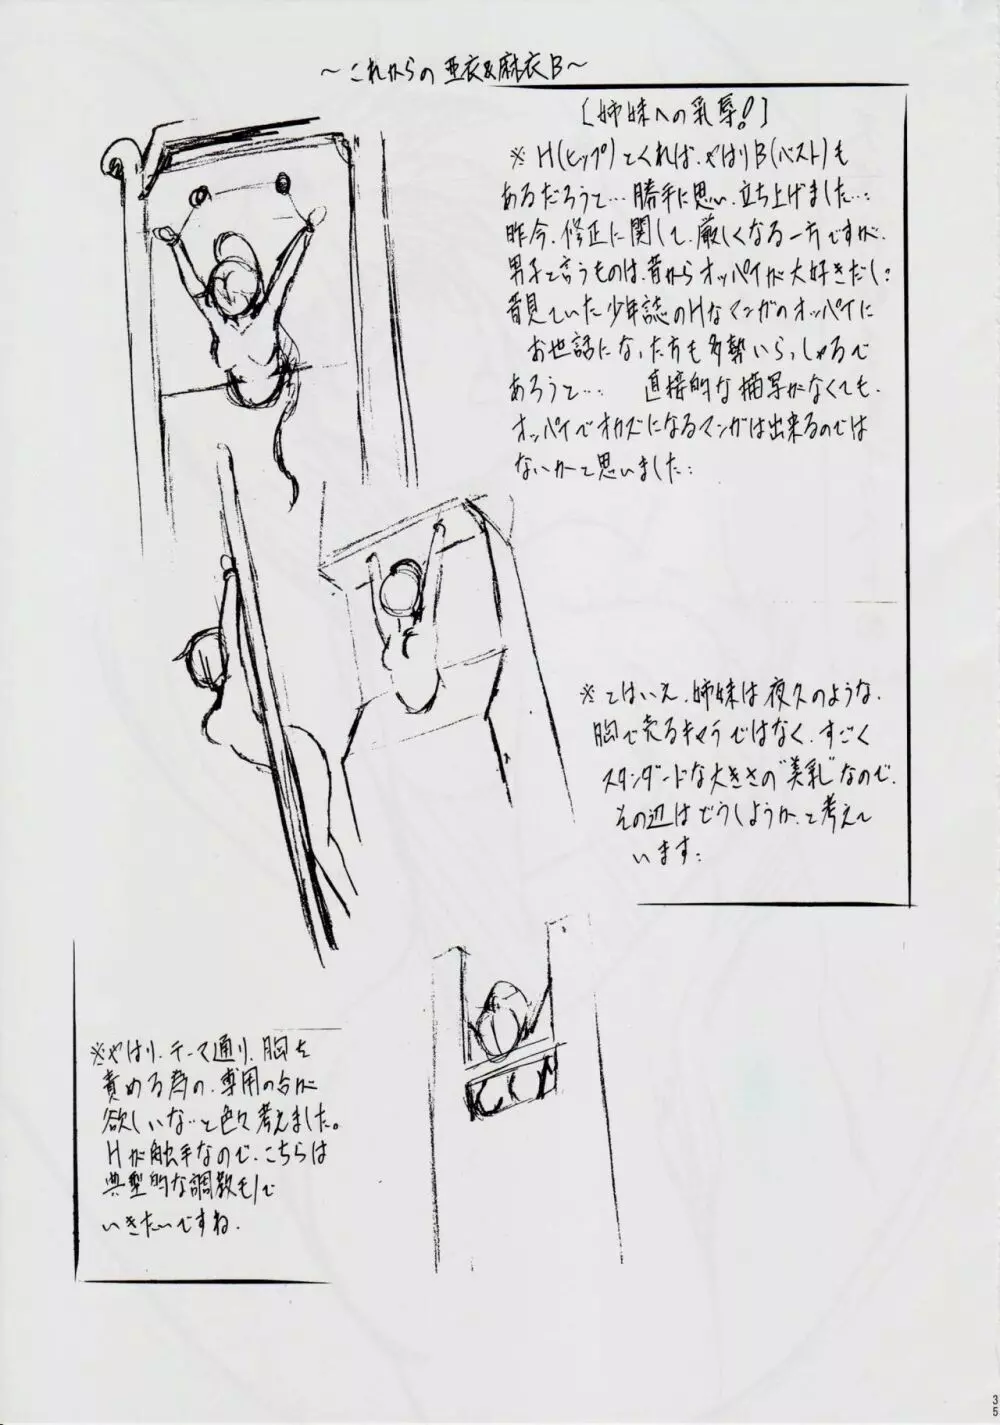 ～これからの亜衣&麻衣B～
［姉妹への乳辱!］
※H(ヒップ)とくれば、やはりB(バスト)も
あるだろうと…勝手に思い、立ち上げました…
昨今、修正に関して、厳しくなる一方ですが、
男子と言うものは、昔からオッパイが大好きだし…
昔見ていた少年誌のHなマンガのオッパイに
お世話になった方も多勢いらっしゃるで
あろうと… 直接的な描写がなくても、
オッパイでオカズになるマンガは出来るのでは
ないかと思いました…
※とはいえ、姉妹は夜久のような、
胸で売るキャラではなく、すごく
スタンダードな大きさの"美乳"なので、
その辺はどうしようか、と考えて
います…
※やはり、テーマ通り、胸を
責める為の、専用の台が
欲しいな…と色々考えました。
Hが触手なので、こちらは
典型的な調教モノで
いきたいですね。
35